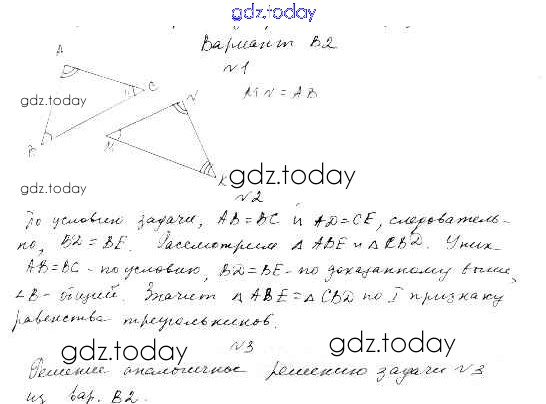 gdz.today
Вариант В2
№1
A
C
N
MN = AB
gdz.today
B
M
K
gdz.today
gdz.today
№2
По условию задачи, AB=BC и AD=CE, следователь-
но, BD = BE. Рассмотрим △ ABE и △ CBD. У них
AB=BC - по условию, BD=BE - по доказанному выше,
∠B - общий. Значит △ ABE = △ CBD по I признаку
равенства треугольников.
№3
gdz.today
gdz.today
Решение аналогичное решению задачи №3
из вар. В2.